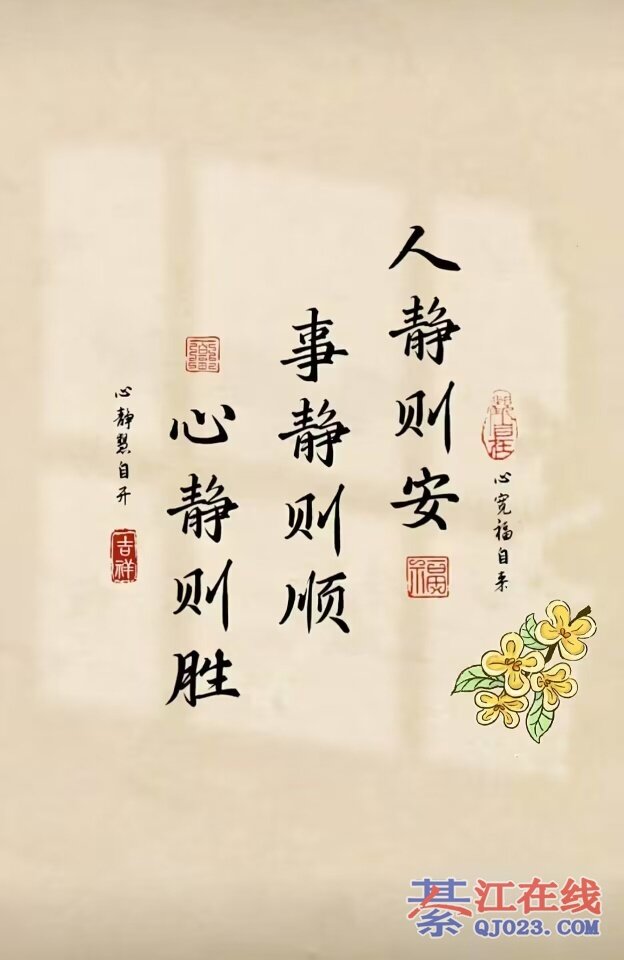 心宽福自来
人静则安
福
事静则顺
心静则胜
心静慧自开
吉祥
綦江在线
QJ023.COM